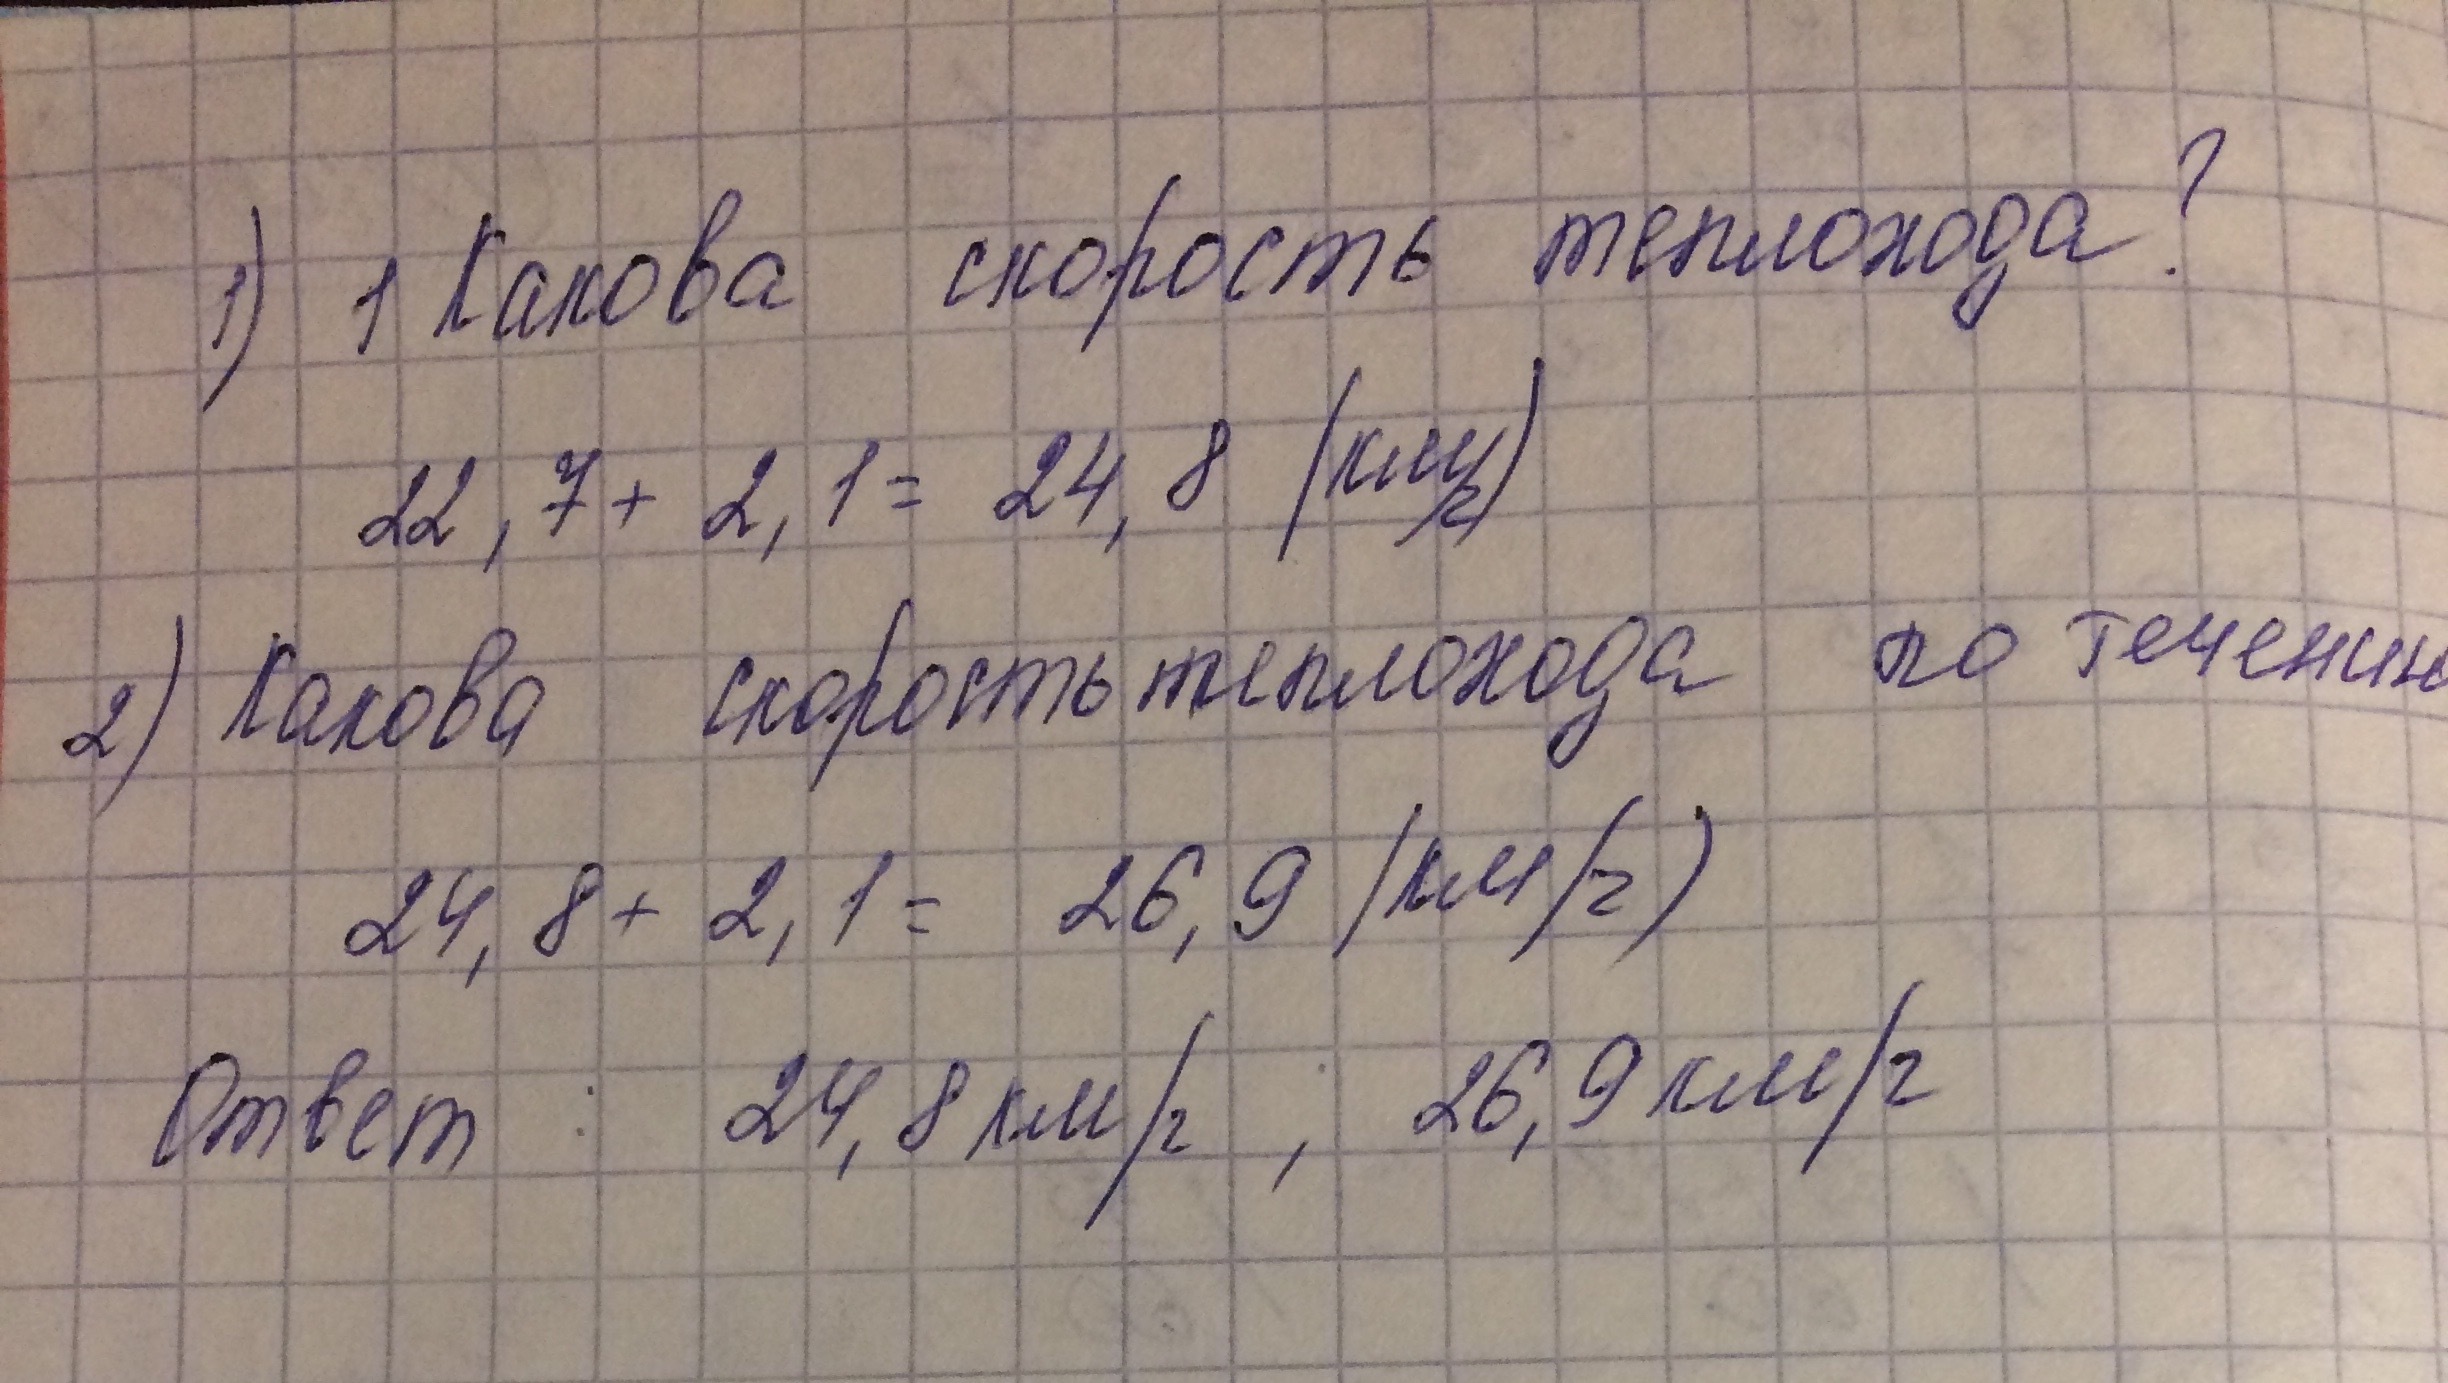 1) 1 Какова скорость теплохода?
22,7 + 2,1 = 24,8 (км/ч)
2) Какова скорость теплохода по течению
24,8 + 2,1 = 26,9 (км/ч)
Ответ: 24,8 км/ч; 26,9 км/ч